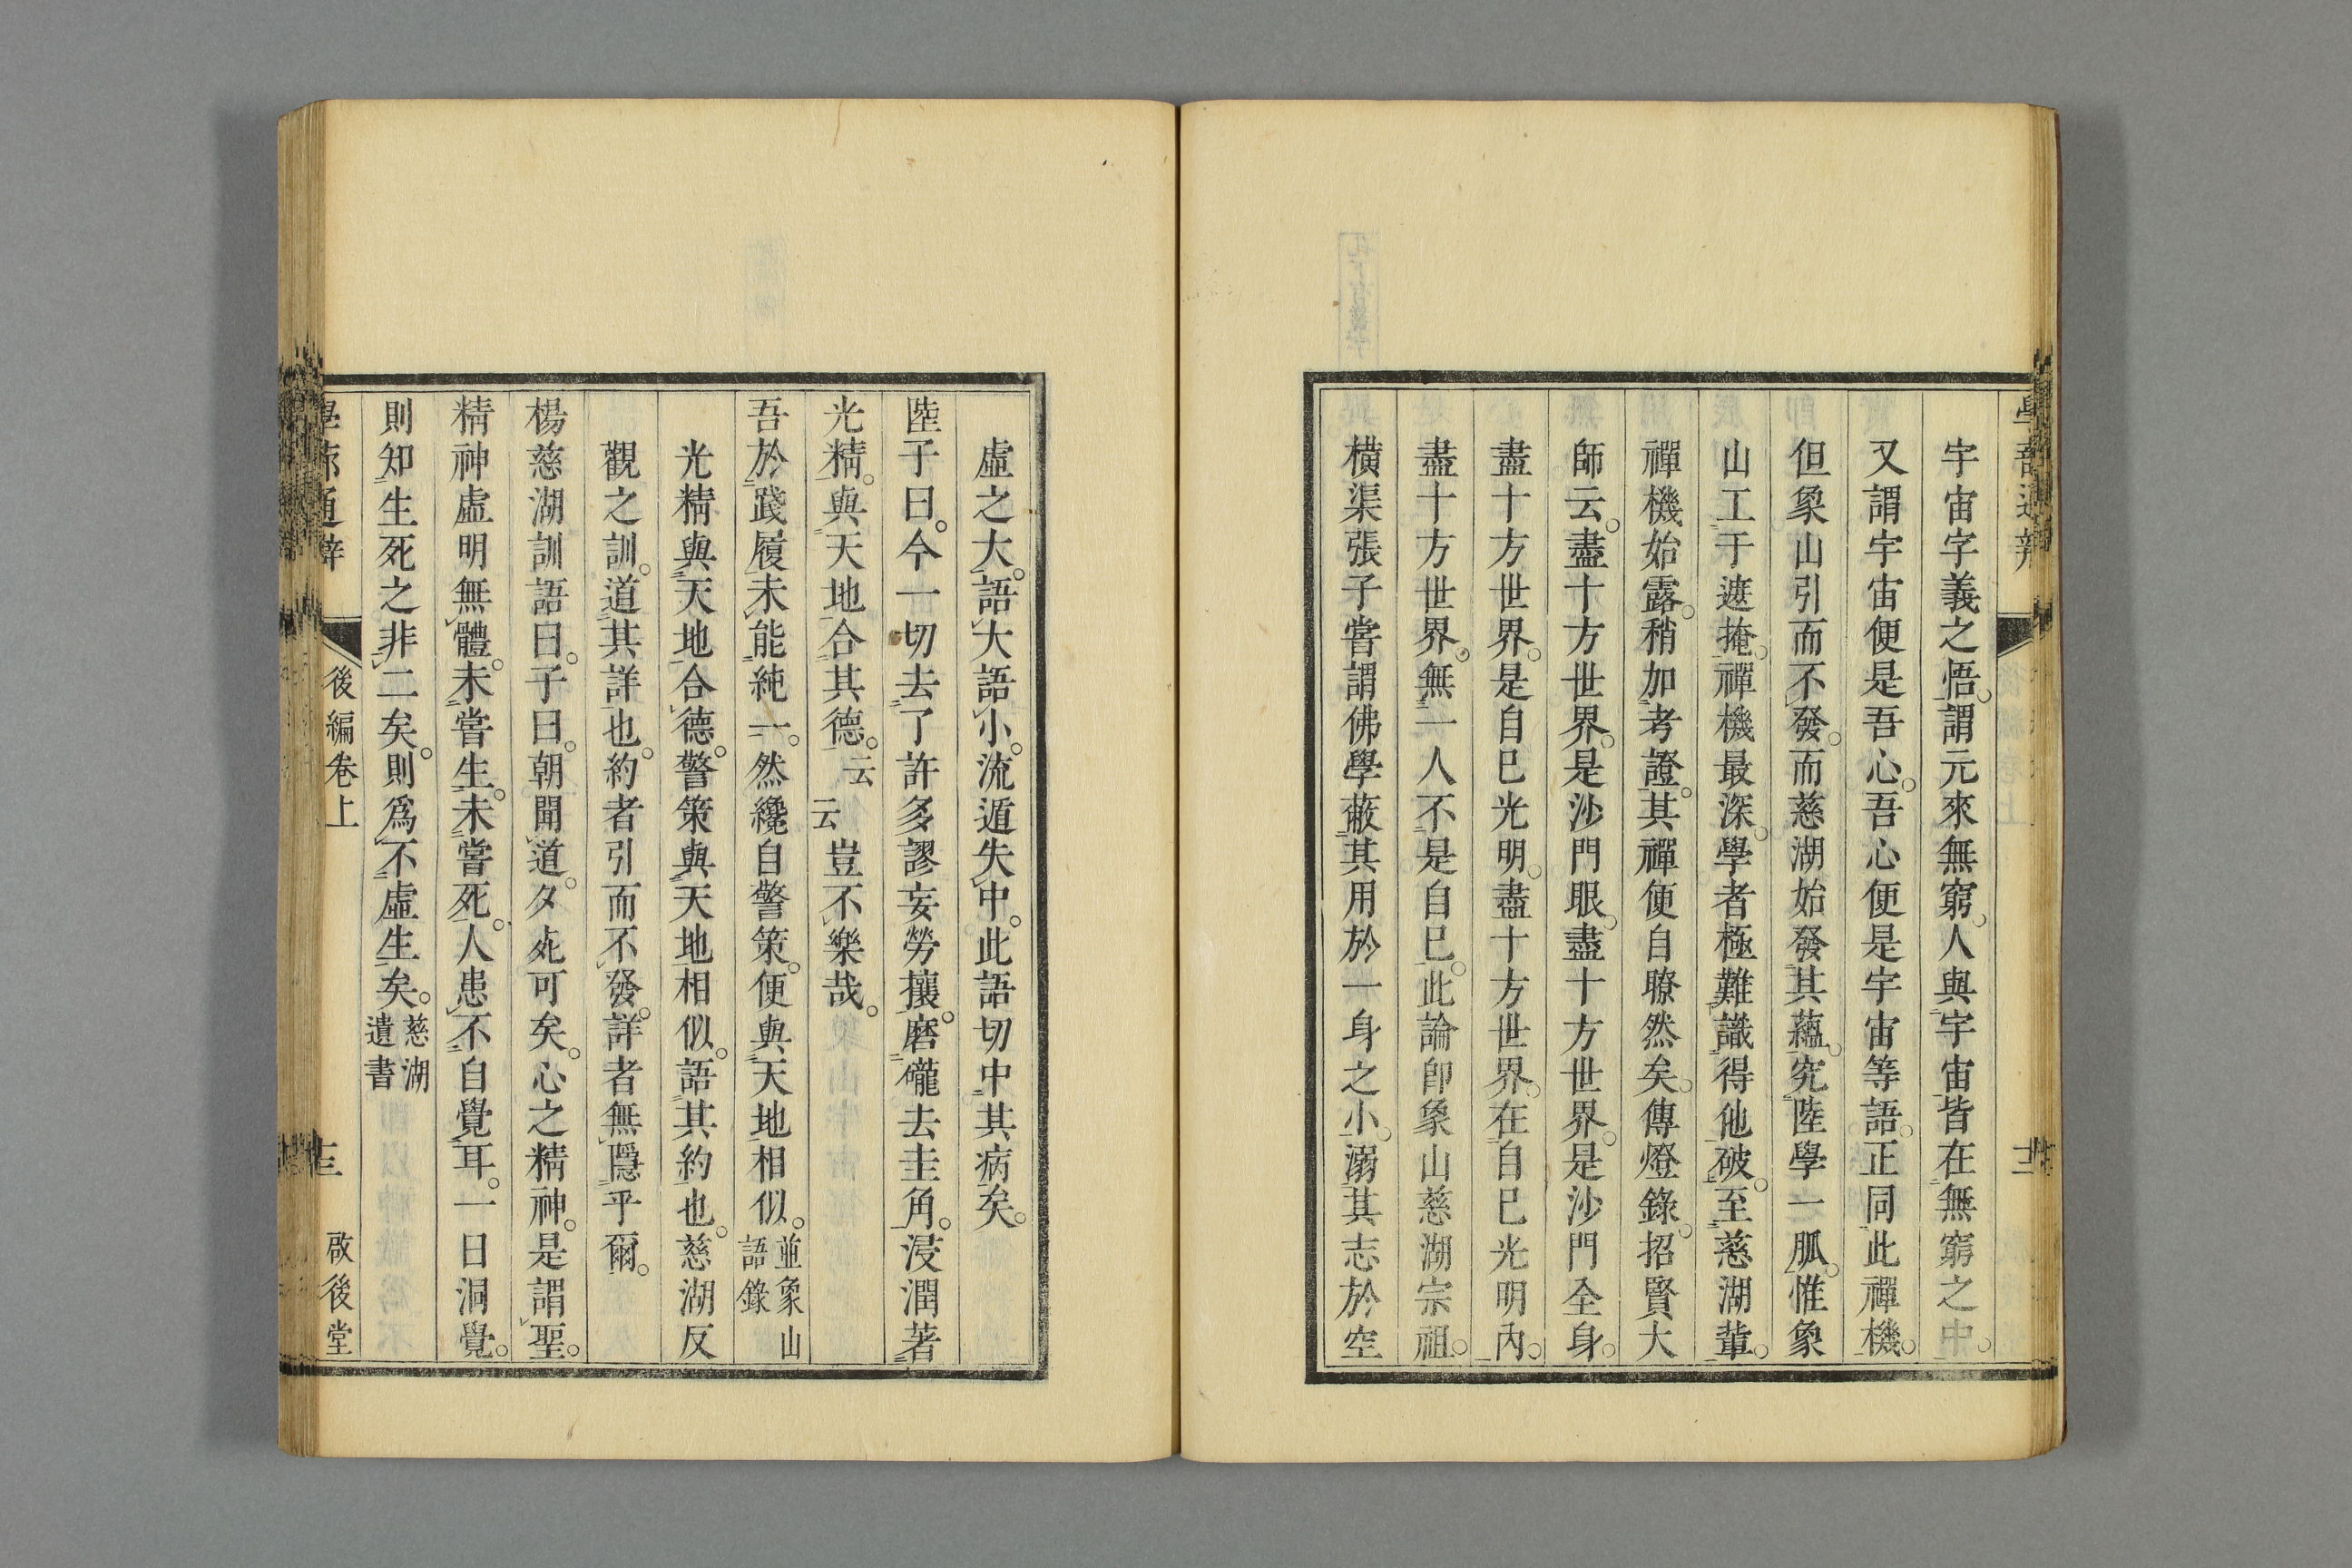 宇宙字義之悟。謂元來無窮。人與宇宙皆在無窮之中。
又謂宇宙便是吾心。吾心便是宇宙等語。正同此禪機。
但象山引而不發。而慈湖始發其蘊。究陸學一脈。惟象
山工于遮掩。禪機最深。學者極難識得他破。至慈湖輩。
禪機始露。稍加考證。其禪便自瞭然矣。傳燈錄。招賢大
師云。盡十方世界。是沙門眼。盡十方世界。是沙門全身。
盡十方世界。是自己光明。盡十方世界。在自己光明內。
盡十方世界。無一人不是自己。此論卽象山慈湖宗祖。
橫渠張子嘗謂佛學蔽其用於一身之小。溺其志於空
虛之大。語大語小。流遁失中。此語切中其病矣。
陸子曰。今一切去了許多謬妄勞攘。磨礲去圭角。浸潤著
光精。與天地合其德。云云豈不樂哉。
吾於踐履未能純一。然纔自警策。便與天地相似。並象山語錄
光精與天地合德。警策與天地相似。語其約也。慈湖反
觀之訓。道其詳也。約者引而不發。詳者無隱乎爾。
楊慈湖訓語曰。子曰。朝聞道。夕死可矣。心之精神。是謂聖。
精神虛明無體。未嘗生。未嘗死。人患不自覺耳。一日洞覺。
則知生死之非二矣。則爲不虛生矣。慈湖遺書
學蔀通辨 後編卷上 十三 啟後堂